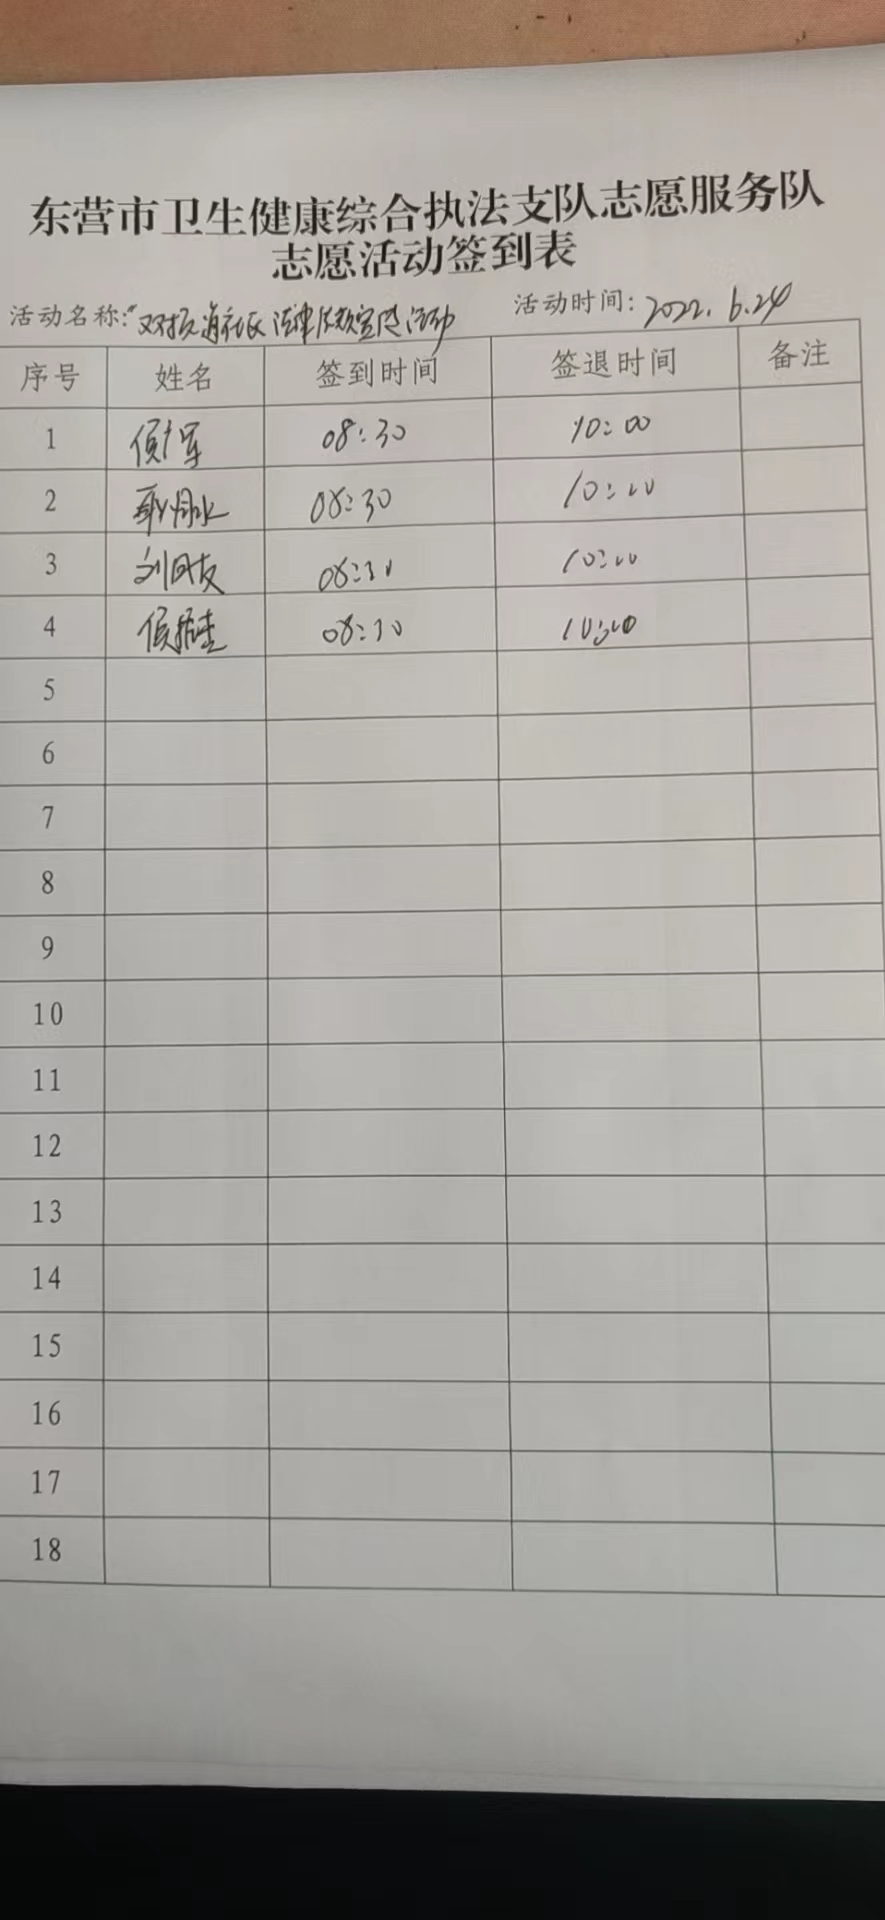 东营市卫生健康综合执法支队志愿服务队
志愿活动签到表
活动名称:"双报到社区法律法规宣传活动 活动时间:2022.6.24
序号 姓名 签到时间 签退时间 备注
1 08:30 10:00
2 08:30 10:00
3 刘 友 08:30 10:00
4 侯 08:30 10:00
5
6
7
8
9
10
11
12
13
14
15
16
17
18